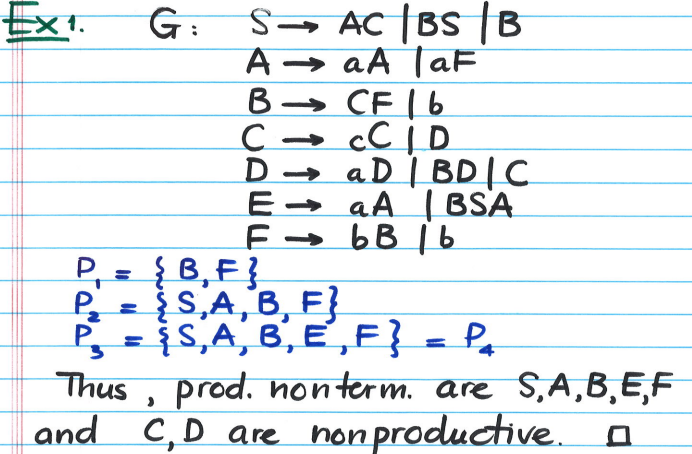 Ex1. G: S → AC | BS | B
A → aA | aF
B → CF | b
C → cC | D
D → aD | BD | C
E → aA | BSA
F → bB | b
P₁ = { B, F }
P₂ = { S, A, B, F }
P₃ = { S, A, B, E, F } = P₄
Thus, prod. nonterm. are S,A,B,E,F
and C,D are nonproductive. □